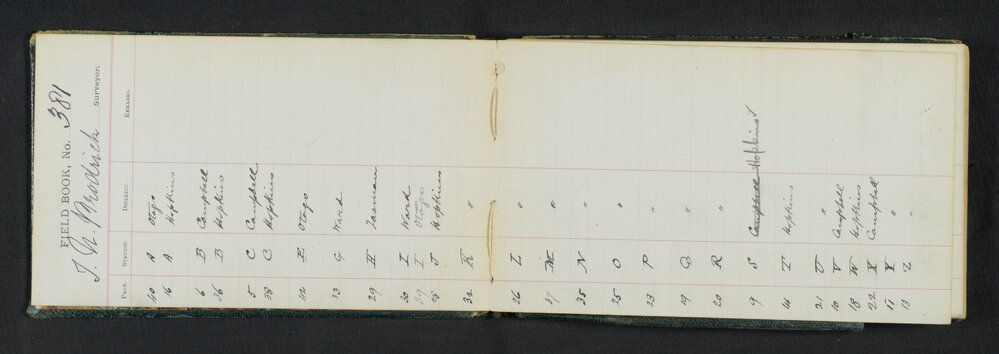 FIELD BOOK, No. 381
T. N. Brodrick Surveyor.
PAGE. STATION. DISTRICT. REMARKS.
40 A Otago
16 A Hopkins
6 B Campbell
36 B Hopkins
5 C Campbell
38 C Hopkins
12 E Otago
33 G Ward
29 H Tasman
30 I Ward
39 I Otago
28 J Hopkins
32 K "
26 L "
27 M "
35 N "
25 O "
23 P "
19 Q "
20 R "
9 S Campbell Hopkins
14 T Hopkins
21 U "
10 V Campbell
18 W Hopkins
22 X Campbell
11 Y "
13 Z "